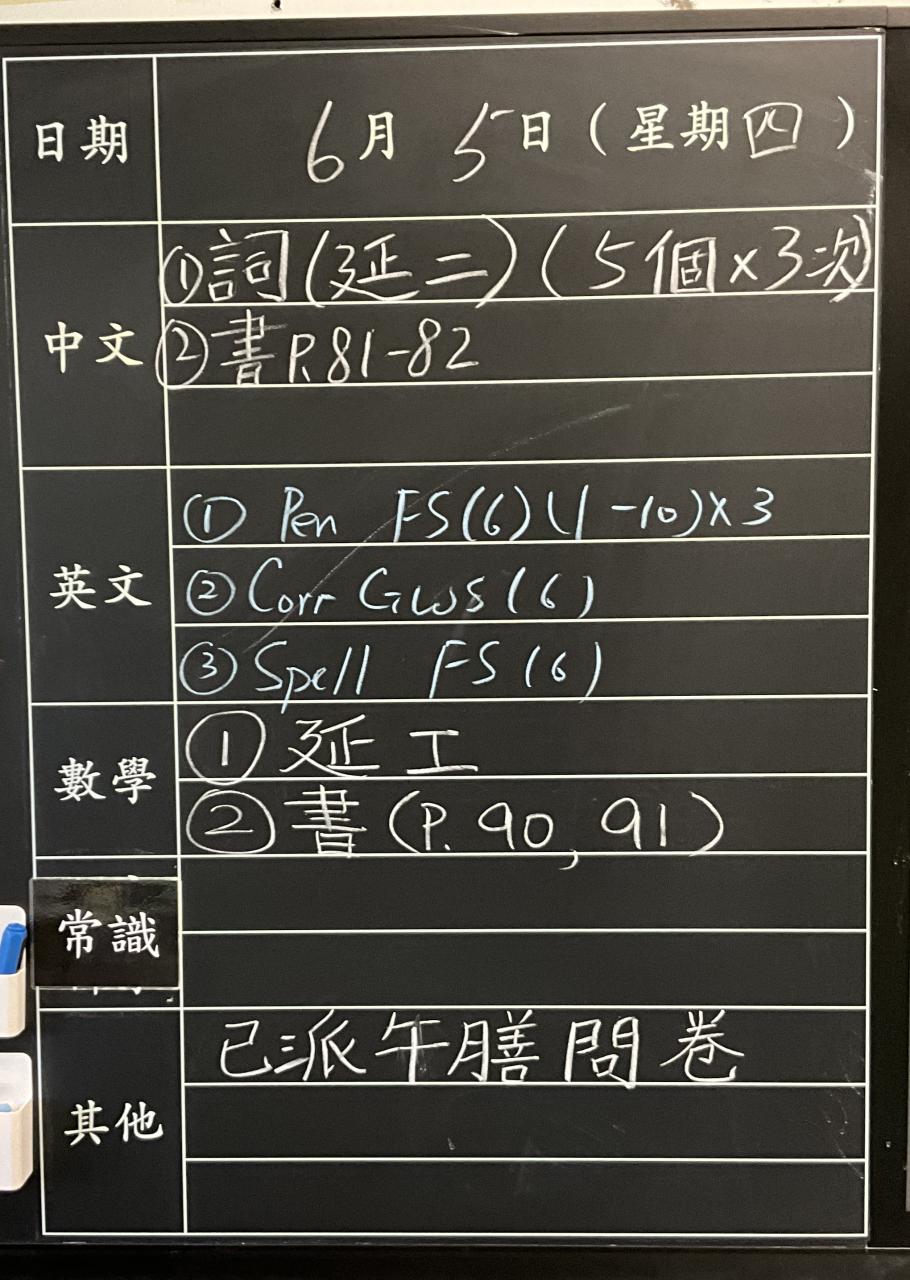 日期 6月 5日（星期四）
中文 ①詞(延二)(5個×3次)
②書P.81-82
英文 ① Pen FS(6)(1-10)×3
② Corr GWS(6)
③ Spell FS(6)
數學 ① 延工
② 書(P.90, 91)
常識
其他 已派午膳問卷